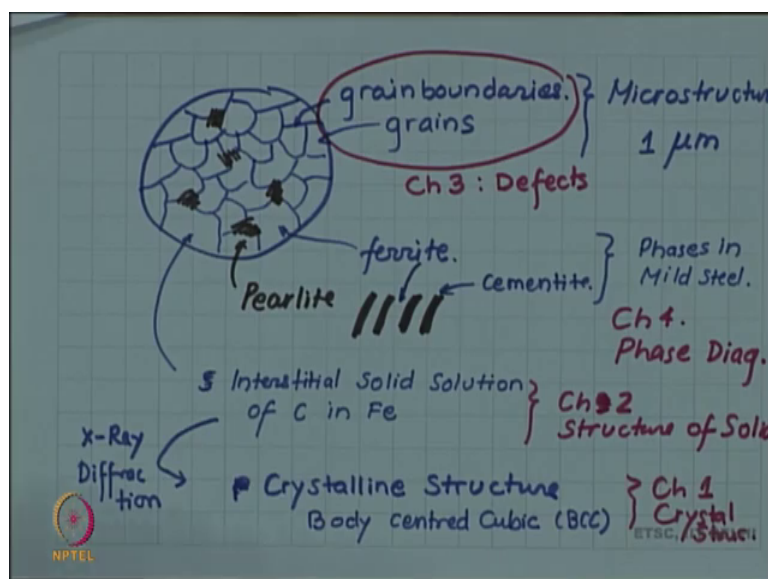 grain boundaries. } Microstructur
grains
1 µm
Ch 3 : Defects
ferrite.
Pearlite
cementite.
Phases in
Mild Steel.
Ch 4.
Phase Diag.
Interstitial Solid Solution
of C in Fe
Ch 2
Structure of Solid
X-Ray
Diffrac
tion
Crystalline Structure
Body centred Cubic (BCC)
Ch 1
Crystal
Struc.
NPTEL